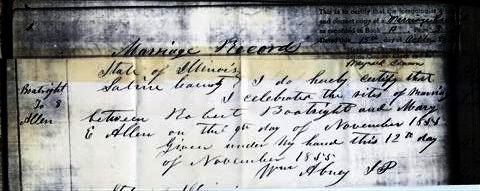 This is to certify that the
and correct copy of a Marriage
as recorded in Book
Marriage Record
State of Illinois
Saline County I do hereby certify that
Boatright
To 8
Allen
I celebrated the rites of
between Robert Boatright and Mary
E Allen on the 9th day of November 1855
Given under my hand this 12th day
of November 1855
Wm Abney JP